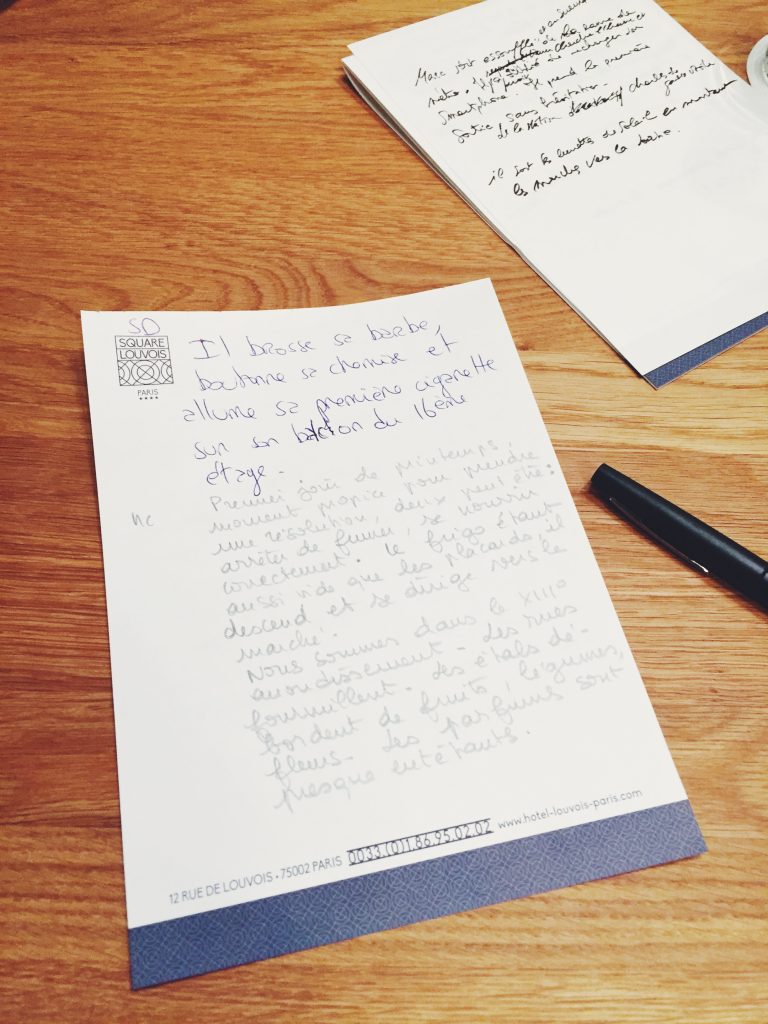 Marc sort essoufflé de la rame de
métro.
smartphone. Il prend la première
sortie sans hésitation
de la station Charles de
Gaulle étoile
il sort les lunettes de soleil en montant
les marches vers la
SD
SQUARE
LOUVOIS
PARIS
★★★★
Il brosse sa barbe,
boutonne sa chemise et
allume sa première cigarette
sur son balcon du 16ème
étage.
nc
Premier jour de printemps,
moment propice pour prendre
une résolution, deux peut être :
arrêter de fumer, se nourrir
correctement. Le frigo étant
aussi vide que les placards, il
descend et se dirige vers le
marché.
Nous sommes dans le XIII°
arrondissement. Les rues
fourmillent. Les étals dé-
bordent de fruits, légumes,
fleurs. Les parfums sont
presque entêtants.
12 RUE DE LOUVOIS • 75002 PARIS 0033.(0)1.86.95.02.02 www.hotel-louvois-paris.com